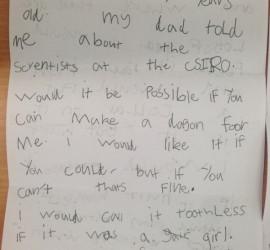 years
old my dad told
me about the
scientists at the CSIRO.
Would it be Possible if You
can make a dagon foor
Me. I would like it if
You could. but if You
can't thats fine.
I would call it toothLess
if it was a girl.